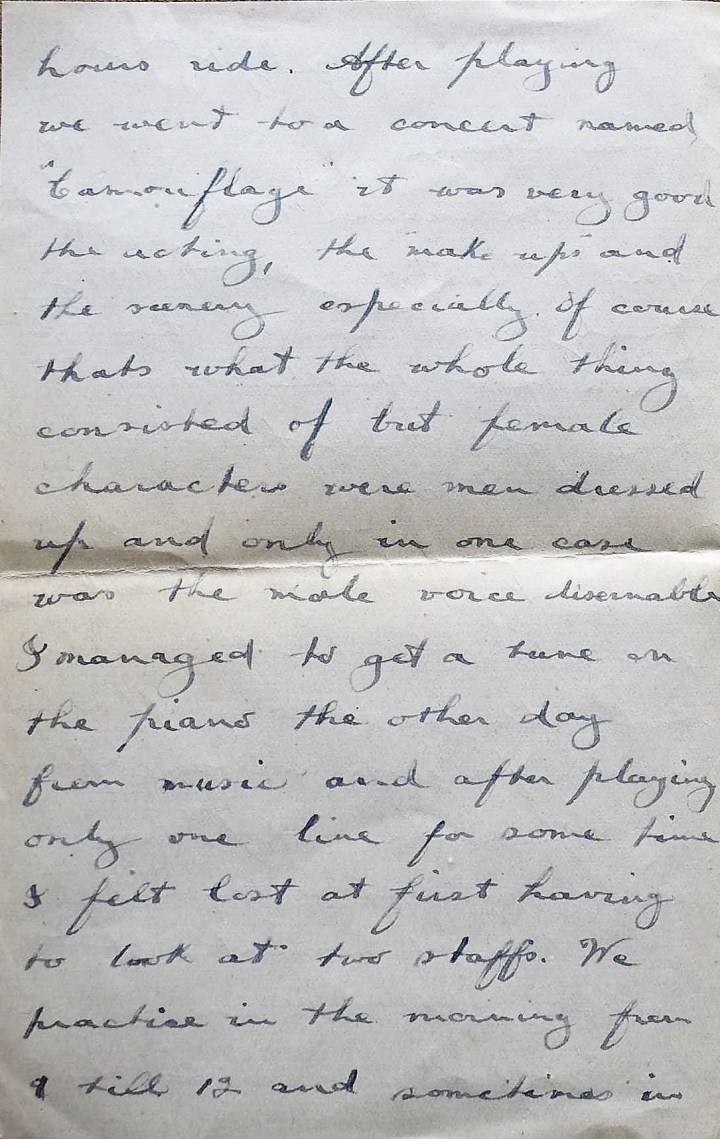 hours ride. After playing
we went to a concert named
"Camouflage" it was very good
the acting, the "make ups" and
the scenery especially. Of course
thats what the whole thing
consisted of but female
characters were men dressed
up and only in one case
was the male voice disernable
I managed to get a tune on
the piano the other day
from music and after playing
only one line for some time
I felt lost at first having
to look at two staffs. We
practise in the morning from
9 till 12 and sometimes in